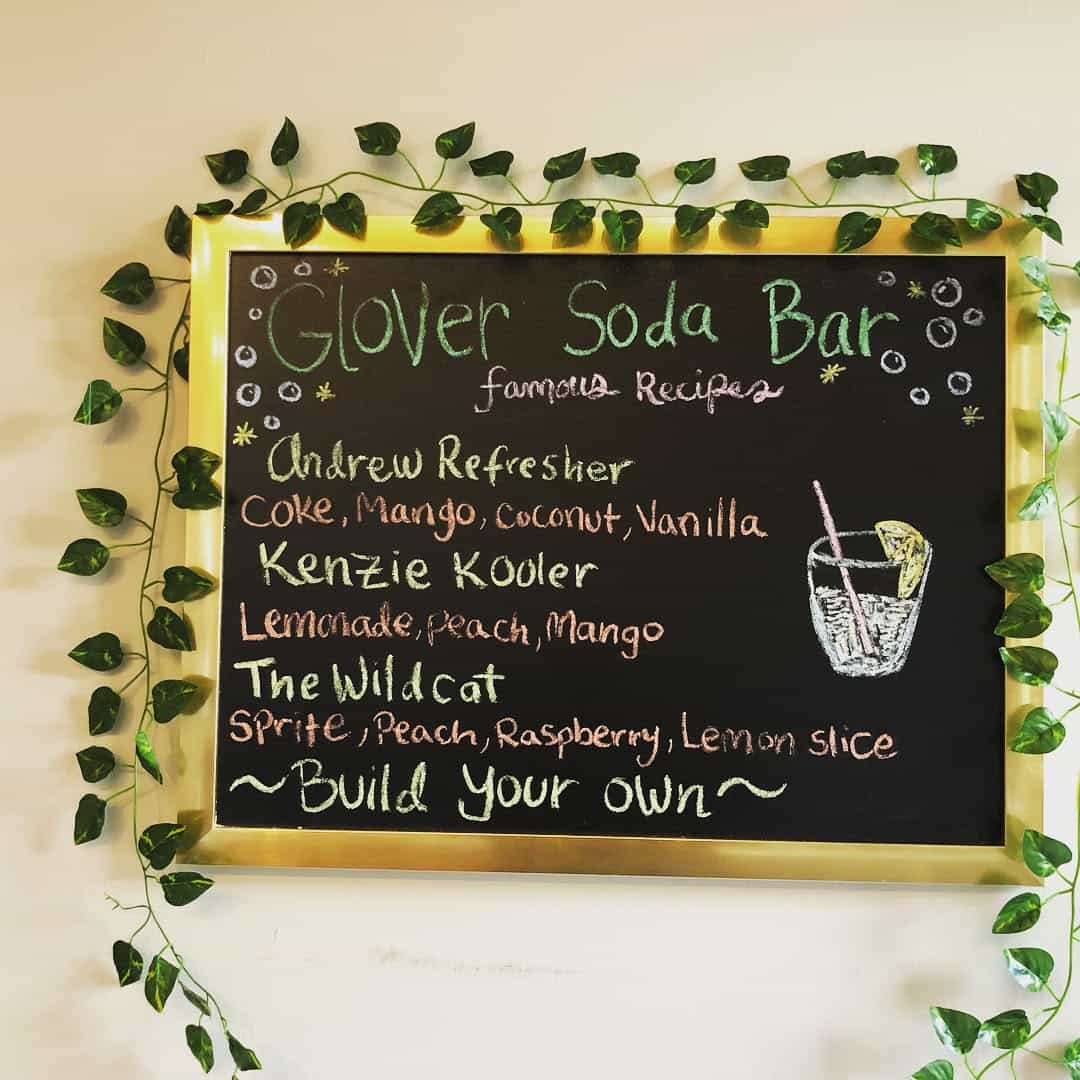 Glover Soda Bar
famous Recipes
Andrew Refresher
Coke, Mango, Coconut, Vanilla
Kenzie Kooler
Lemonade, peach, Mango
The Wildcat
Sprite, Peach, Raspberry, Lemon slice
~Build your own~